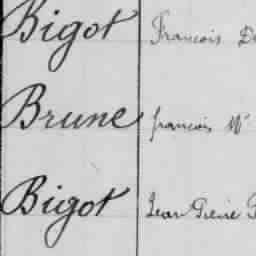 Bigot François D
Brune françois M
Bigot Jean Pierre